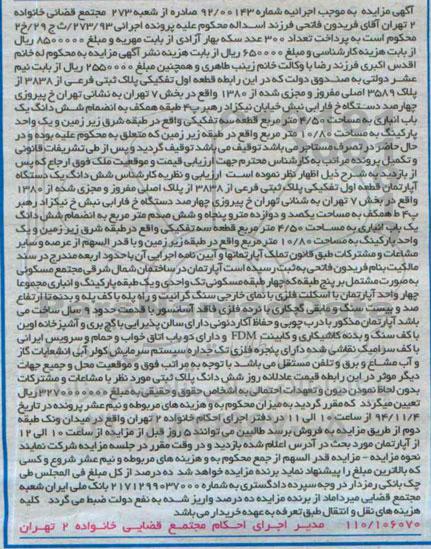 آگهی مزایده به موجب اجرائیه شماره ۹۲/۰۰۱۴۳ صادره از شعبه ۲۷۳ مجتمع قضائی خانواده
۲ تهران آقای فریدون فاتحی فرزند اسداله محکوم علیه پرونده اجرائی ۲۷۳/۹۳/ث ج خ/۲۹
محکوم است به پرداخت تعداد ۳۰۰ عدد سکه بهار آزادی از بابت مهریه و مبلغ ۸۵۰۰۰۰۰ ریال
از بابت هزینه کارشناسی و مبلغ ۶۵۰۰۰۰ ریال از بابت هزینه نشر آگهی مزایده به محکوم له خانم
اقدس اکبری فرزند رضا با وکالت خانم زینب طاهری و همچنین مبلغ ۲۵۵۰۰۰۰ ریال بابت نیم
عشر دولتی به صندوق دولت که در این رابطه قطعه اول تفکیکی پلاک ثبتی فرعی از ۳۸۳۸ از
پلاک ۳۵۸۹ اصلی مفروز و مجزی شده از ۱۳۸۰ واقع در بخش ۷ تهران به نشانی تهران خ پیروزی
چهارصد دستگاه خ فارابی نبش خیابان نیکزاد رهبر پ۴ طبقه همکف به انضمام شش دانگ یک
باب انباری به مساحت ۴/۵۰ متر مربع قطعه سه تفکیکی واقع در طبقه شرق زیر زمین و یک واحد
پارکینگ به مساحت ۱۰/۸۰ متر مربع واقع در طبقه زیر زمین که متعلق به محکوم علیه بوده و در
حال حاضر در تصرف مستاجر می باشد توقیف می باشد توقیف گردید و پس از طی تشریفات قانونی
و تکمیل پرونده مراتب به کارشناس محترم جهت ارزیابی قیمت و موقعیت ملک فوق ارجاع که پس
از بازدید به شرح ذیل اظهار نظر نموده است ارزیابی و نظریه کارشناس شش دانگ یک دستگاه
آپارتمان قطعه اول تفکیکی پلاک ثبتی فرعی از ۳۸۳۸ از پلاک اصلی مفروز و مجزی شده از ۱۳۸۰
واقع در بخش ۷ تهران به نشانی تهران خ پیروزی چهارصد دستگاه خ فارابی نبش خ نیکزاد رهبر
پ۴ ط همکف به مساحت یکصد و دوازده متر و پنجاه و شش صدم متر مربع به انضمام شش دانگ
یک باب انباری به مساحت ۴/۵۰ متر مربع قطعه سه تفکیکی واقع در طبقه شرق زیر زمین و یک
واحد پارکینگ به مساحت ۱۰/۸۰ متر مربع واقع در طبقه زیر زمین و با قدر السهم از عرصه و سایر
مشاعات و مشترکات طبق قانون تملک آپارتمانها و آیین نامه اجرایی آن با حدود اربعه مندرج در سند
مالکیت بنام فریدون فاتحی به ثبت رسیده است آپارتمان در ساختمان شمال شرقی مجتمع مسکونی
به صورت مشتمل بر پنج طبقه که چهار طبقه مسکونی تک واحدی و یک طبقه پارکینگ و انباری مجموعا
چهار واحد آپارتمان با اسکلت فلزی با نمای خارجی سنگ گرانیت و راه پله با کف پله و بدنه تا ارتفاع
صد و بیست سنگ و مابقی گچکاری با نرده فلزی فاقد آسانسور با قدمت حدود ۹ سال ساخت می
باشد آپارتمان مذکور با درب چوبی و حفاظ آکاردئونی دارای سالن پذیرایی با گچ بری و آشپزخانه اوپن
با کف سنگ و بدنه کاشیکاری و کابینت FDM و دارای دو باب اتاق خواب و حمام و سرویس ایرانی
با کف سرامیک نقاشی شده دارای پنجره فلزی تک جداره سیستم سرمایش کولر آبی انشعابات گاز
و آب مشاع و برق و تلفن مستقل می باشد با توجه به مراتب فوق و موقعیت محل و جمیع جهات
دیگر موثر در این رابطه قیمت عادلانه روز شش دانگ پلاک ثبتی مورد نظر با مشاعات و مشترکات
بدون لحاظ نمودن دیون و تعهدات احتمالی به اشخاص حقوق و حقیقی به مبلغ ۳۲۷۰۰۰۰۰۰۰ ریال
تعیین میگردند که مقرر گردید به میزان محکوم به و هزینه های مربوطه و نیم عشر پرونده در تاریخ
۹۴/۱۱/۴ از ساعت ۱۰ الی ۱۱ در دفتر اجرای احکام خانواده ۲ تهران واقع در میدان ونک طبقه
دوم از طریق مزایده به فروش برسد طالبین می توانند ۵ روز قبل از مزایده از ساعت ۱۰ الی ۱۲
از آپارتمان مورد بحث در آدرس اعلام شده بازدید و در وقت مقرر در جلسه مزایده شرکت نمایند
نحوه مزایده - مزایده قدر السهم از جمع محکوم به و هزینه های مربوطه و نیم عشر شروع و کسی
که بالاترین مبلغ را پیشنهاد نماید برنده مزایده خواهد شد ده درصد از کل مبلغ فی المجلس طی
چک بانکی رمزدار در وجه سپرده دادگستری به شماره ۲۱۷۱۲۹۹۰۳۷۰۰۰ بانک ملی ایران شعبه
مجتمع قضایی میرداماد از برنده مزایده ده درصد واریز شده به نفع دولت ضبط می گردد کلیه
هزینه های نقل و انتقال طبق تعرفه به عهده خریدار می باشد
۱۱۰/۱۰۶۰۷۰ مدیر اجرای احکام مجتمع قضایی خانواده ۲ تهران